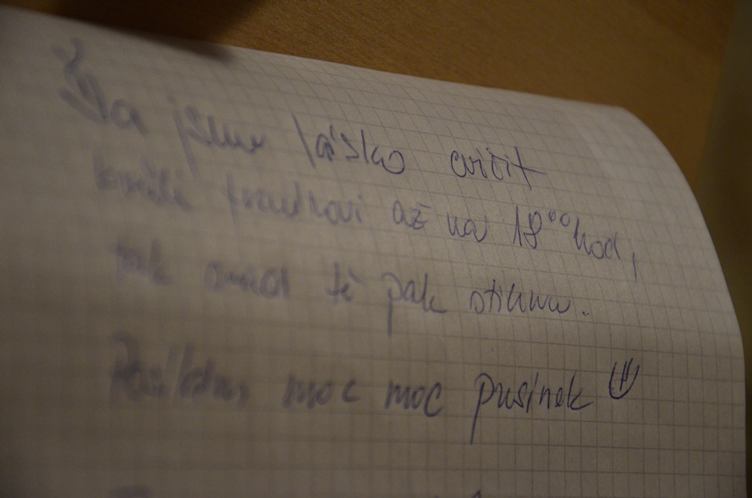 Šla jsem lásko cvičit
kvůli až na 18⁰⁰ hod,
tak snad tě pak stihnu.
Posílám moc moc pusinek